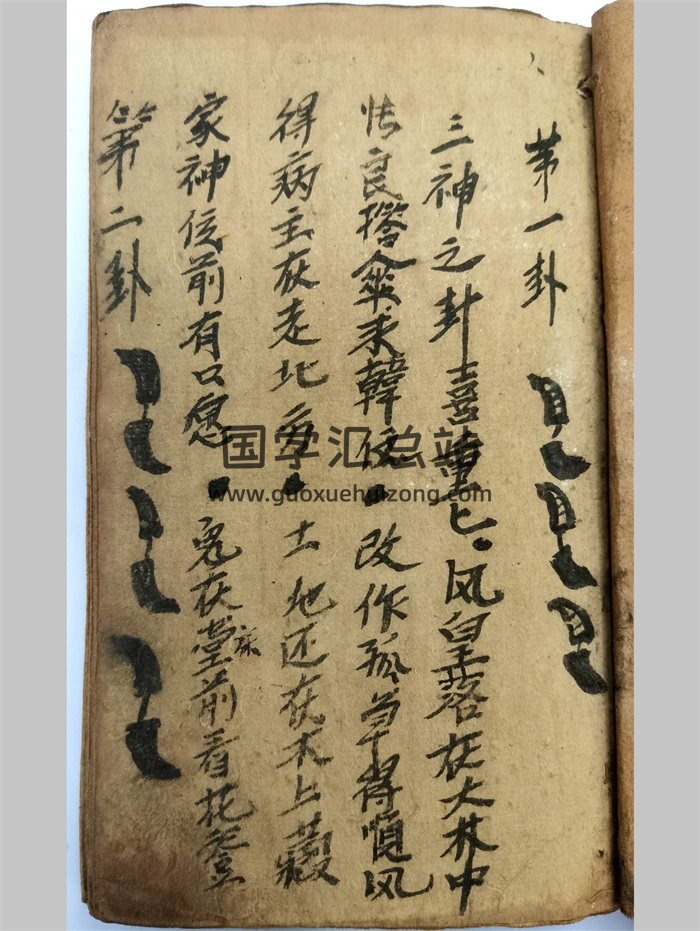 第一卦
三神之卦喜重匕。风皇落在大林中
怅良撘伞求韓信●改作孤草得順风
得病主在走北方●土地还在木上藏
家神位前有口愿●鬼在堂前看花登
第二卦
国学汇总站
www.guoxuehuizong.com